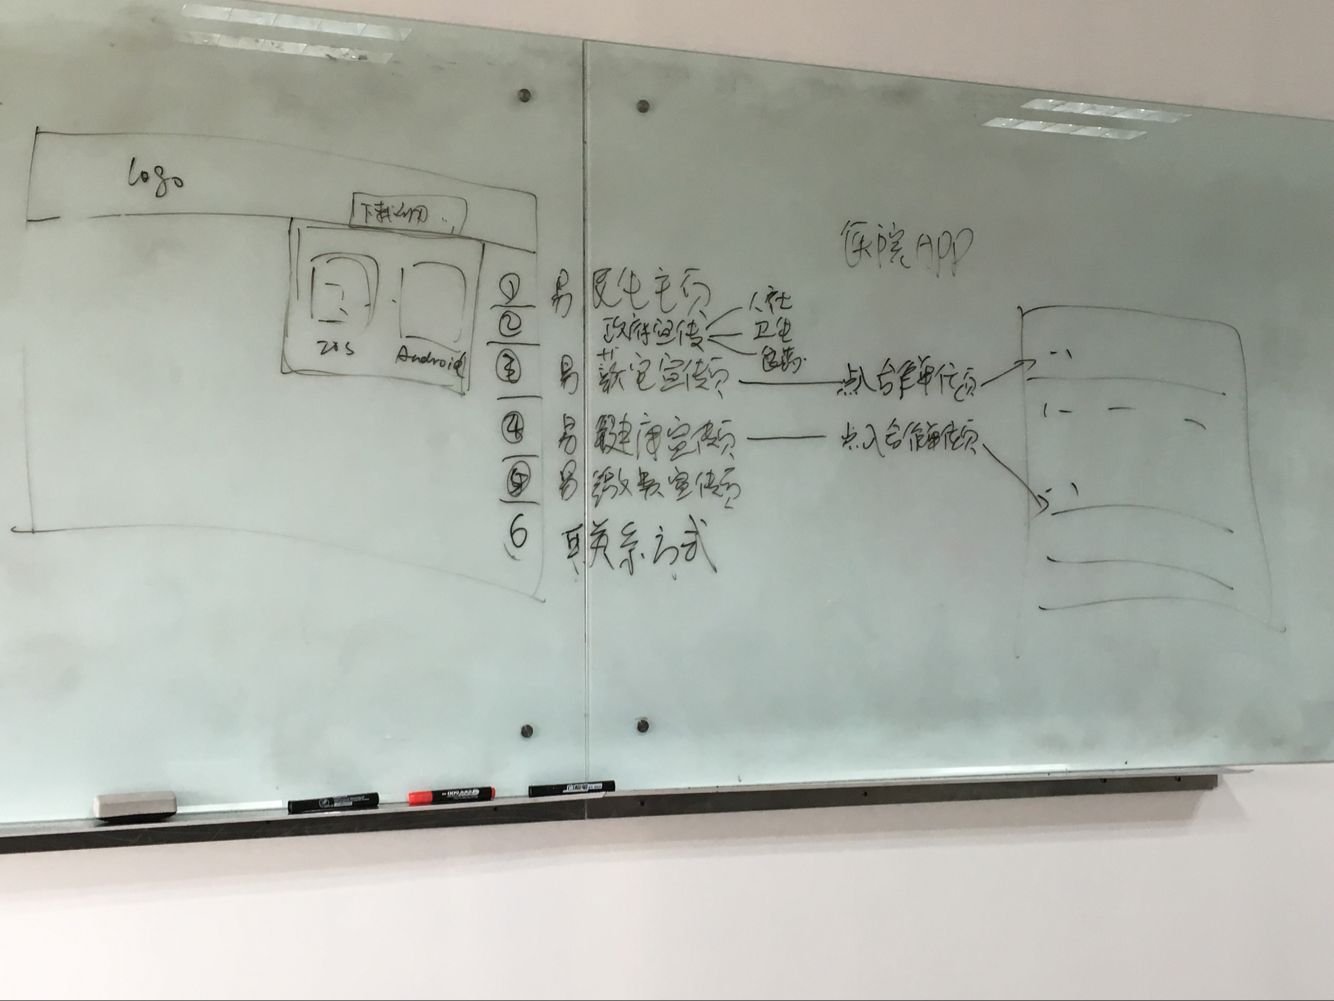 logo
下载应用
ios
Android
① 易 民生主页
② 政府宣传
人社
卫生
③ 易 宣传页 点入合作单位页
④ 易 健康宣传页 点入合作单位页
⑤ 易 缴费宣传页
6 联系方式
医院APP